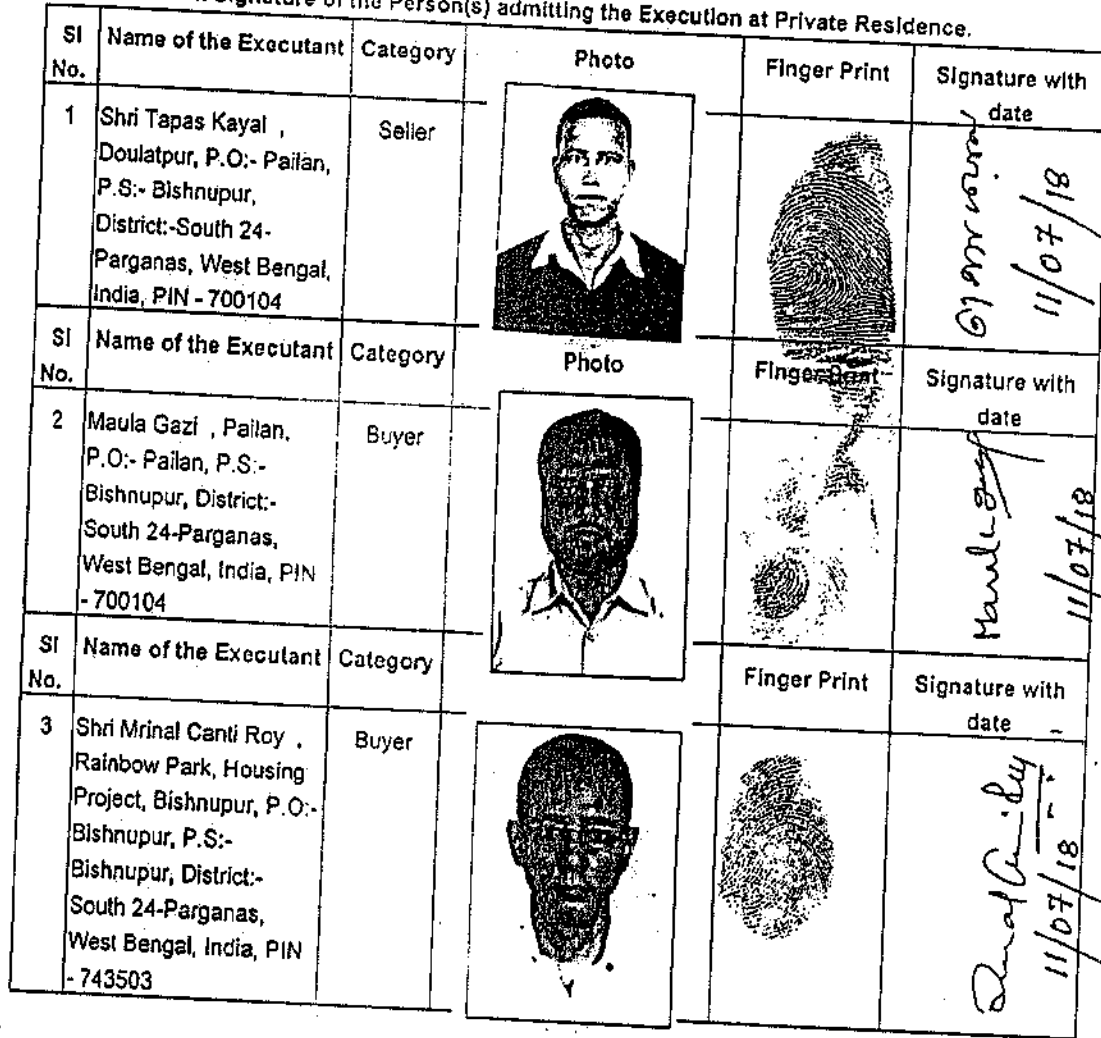 Signature of the Person(s) admitting the Execution at Private Residence.
Sl No. Name of the Executant Category Photo Finger Print Signature with date
1 Shri Tapas Kayal , Seller
Doulatpur, P.O:- Pailan,
P.S:- Bishnupur,
District:-South 24-
Parganas, West Bengal,
India, PIN - 700104
11/07/18
Sl No. Name of the Executant Category Photo Finger Print Signature with date
2 Maula Gazi , Pailan, Buyer
P.O:- Pailan, P.S:-
Bishnupur, District:-
South 24-Parganas,
West Bengal, India, PIN
- 700104
11/07/18
Sl No. Name of the Executant Category Finger Print Signature with date
3 Shri Mrinal Canti Roy , Buyer
Rainbow Park, Housing
Project, Bishnupur, P.O:-
Bishnupur, P.S:-
Bishnupur, District:-
South 24-Parganas,
West Bengal, India, PIN
- 743503
11/07/18